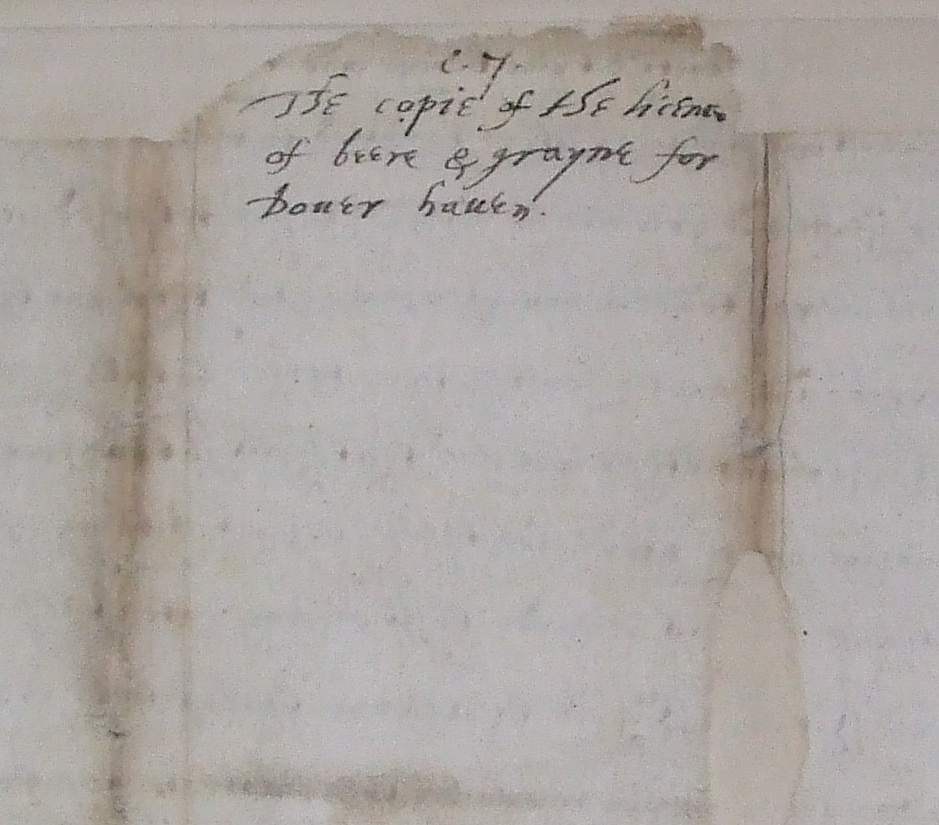 C. 7.
The copie of the licence
of beere & grayne for
Dover haven.